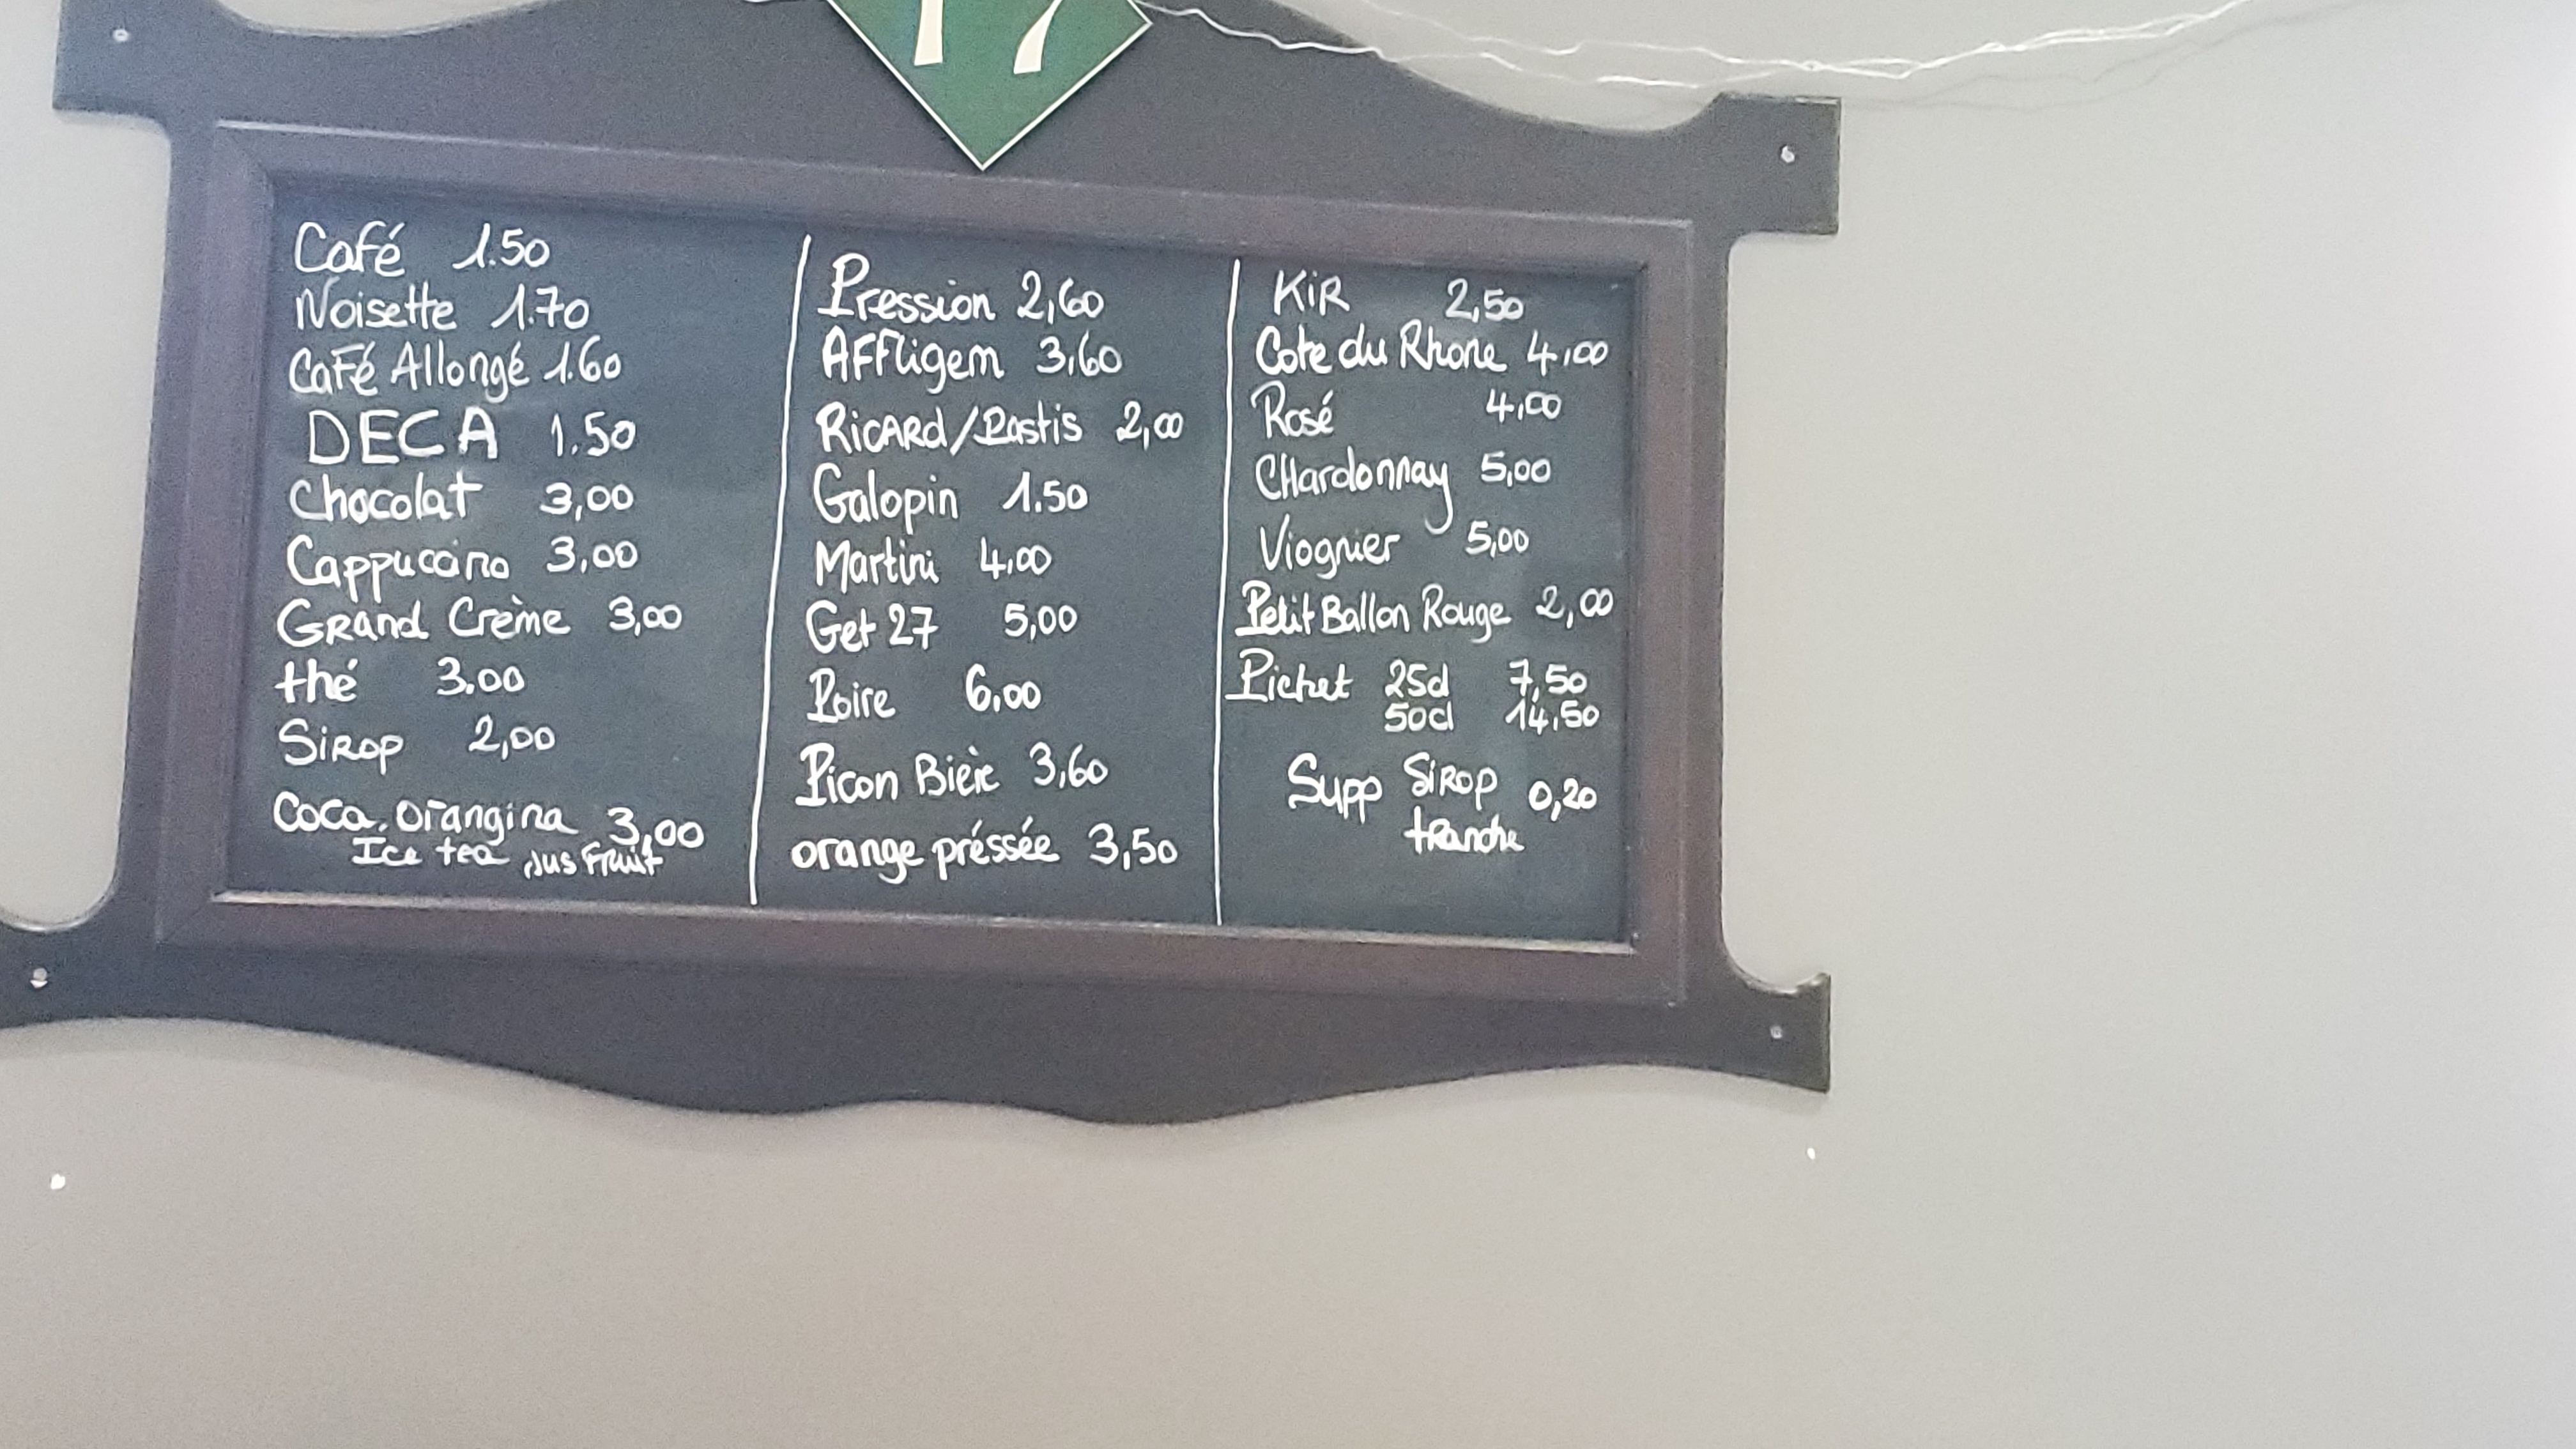 17
Café 1.50
Noisette 1.70
Café Allongé 1.60
DECA 1.50
Chocolat 3,00
Cappuccino 3,00
GRand Crème 3,00
thé 3.00
SiROP 2,00
Coca. Orangina 3,00
Ice tea Jus Fruit
Pression 2,60
AFFligem 3,60
RicARd/Pastis 2,00
Galopin 1.50
Martini 4,00
Get 27 5,00
Poire 6,00
Picon Bière 3,60
orange préssée 3,50
KiR 2,50
Cote du Rhone 4,00
Rosé 4,00
CHardonnay 5,00
Viognier 5,00
Petit Ballon Rouge 2,00
Pichet 25cl 7,50
50cl 14,50
Supp SiROP 0,20
tRanche